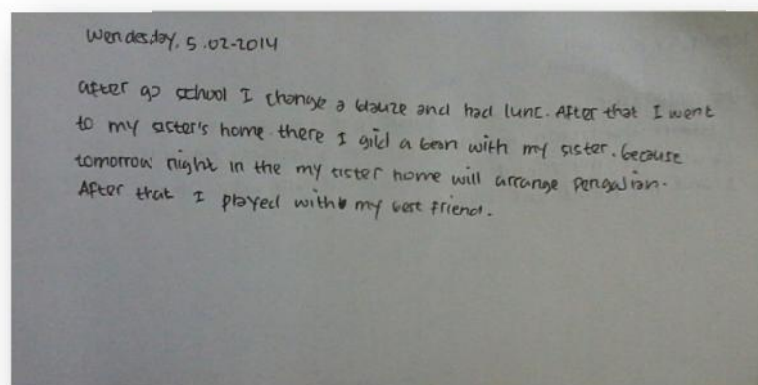 Wendesday, 5.02-2014
after go school I change a blauze and had lunc. After that I went
to my sister's home. there I gild a bean with my sister. because
tomorrow night in the my sister home will arrange pengajian.
After that I played with my best friend.